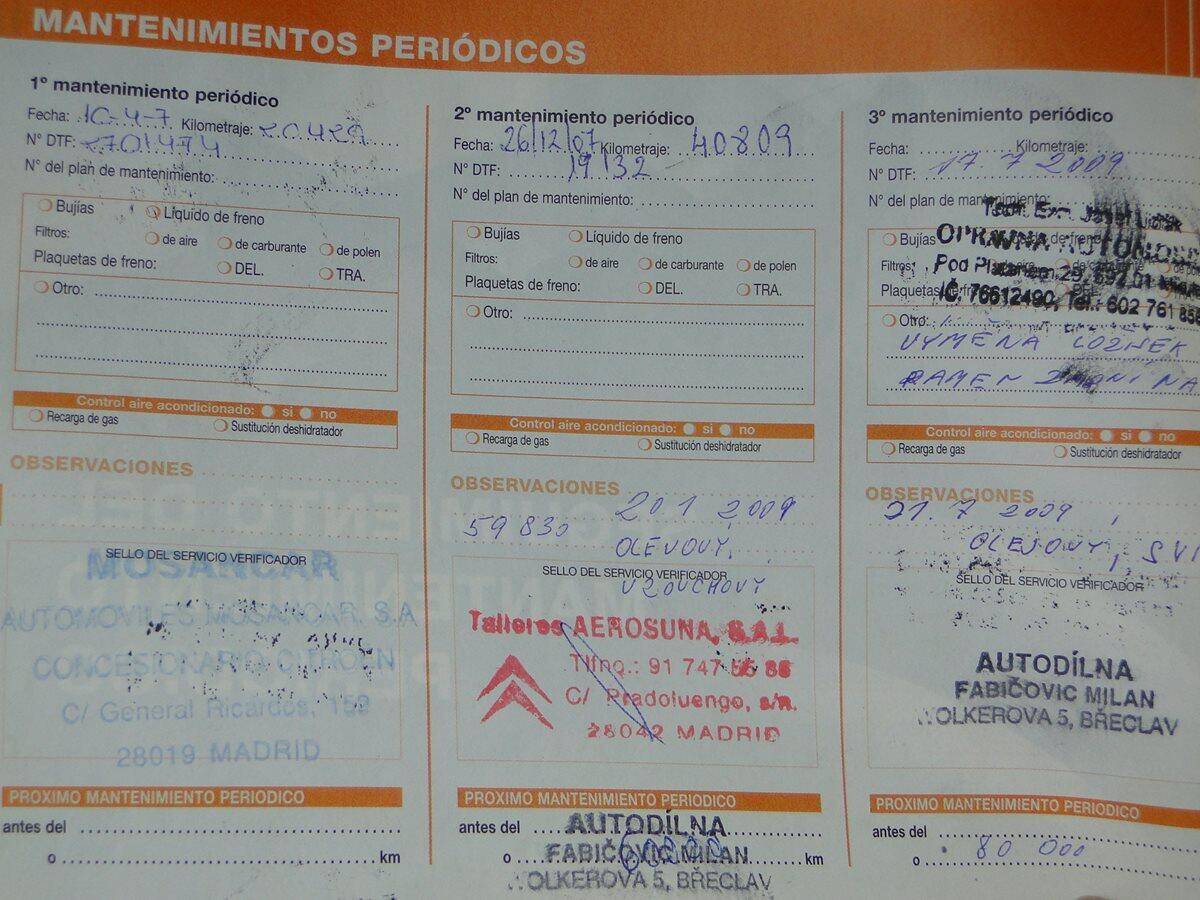 MANTENIMIENTOS PERIÓDICOS
1º mantenimiento periódico
Fecha: 10-4-7 Kilometraje: 20.429
N° DTF: 2701474
N° del plan de mantenimiento:
Bujías Líquido de freno
Filtros: de aire de carburante de polen
Plaquetas de freno: DEL. TRA.
Otro:
Control aire acondicionado: si no
Recarga de gas Sustitución deshidratador
OBSERVACIONES
SELLO DEL SERVICIO VERIFICADOR
MOSANCAR
AUTOMOVILES MOSANCAR, S.A
CONCESIONARIO CITROËN
C/ General Ricardos, 159
28019 MADRID
PROXIMO MANTENIMIENTO PERIODICO
antes del
o km
2º mantenimiento periódico
Fecha: 26/12/07 Kilometraje: 40809
N° DTF: 19132
N° del plan de mantenimiento:
Bujías Líquido de freno
Filtros: de aire de carburante de polen
Plaquetas de freno: DEL. TRA.
Otro:
Control aire acondicionado: si no
Recarga de gas Sustitución deshidratador
OBSERVACIONES
59 830 20 1 2009
OLEJOVÝ,
SELLO DEL SERVICIO VERIFICADOR
VZDUCHOVÝ
Talleres AEROSUNA, S.A.L.
Tlfno.: 91 747 55 86
C/ Pradoluengo, s/n.
28042 MADRID
PROXIMO MANTENIMIENTO PERIODICO
antes del AUTODÍLNA
o FABIČOVIC MILAN km
WOLKEROVA 5, BŘECLAV
3º mantenimiento periódico
Fecha: Kilometraje:
N° DTF: 17. 7 2009
N° del plan de mantenimiento:
OPRAVNA
Bujías
Filtros:
Pod
Plaquetas
IČ. 76612490, Tel.: 602 761 856
Otro:
VÝMĚNA LOŽISEK
RAMEN
Control aire acondicionado: si no
Recarga de gas Sustitución deshidratador
OBSERVACIONES
21. 7 2009
OLEJOVÝ,
SELLO DEL SERVICIO VERIFICADOR
AUTODÍLNA
FABIČOVIC MILAN
WOLKEROVA 5, BŘECLAV
PROXIMO MANTENIMIENTO PERIODICO
antes del
o 80 000